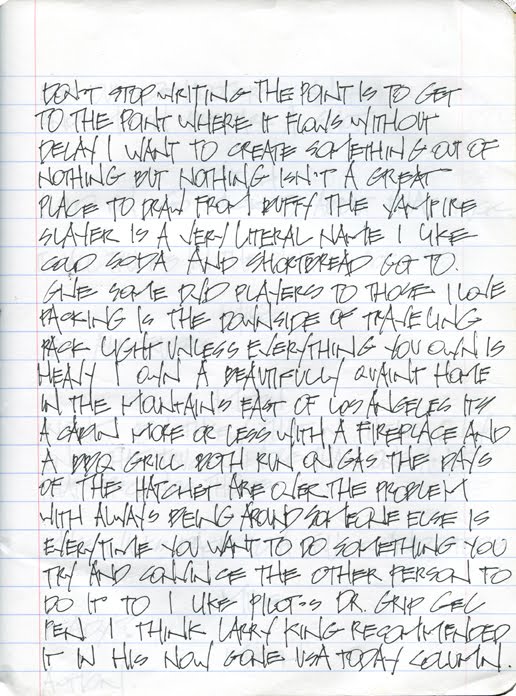 DON'T STOP WRITING THE POINT IS TO GET
TO THE POINT WHERE IT FLOWS WITHOUT
DELAY I WANT TO CREATE SOMETHING OUT OF
NOTHING BUT NOTHING ISN'T A GREAT
PLACE TO DRAW FROM BUFFY THE VAMPIRE
SLAYER IS A VERY LITERAL NAME I LIKE
COLD SODA AND SHORTBREAD GO TO.
GIVE SOME DVD PLAYERS TO THOSE I LOVE
PACKING IS THE DOWNSIDE OF TRAVELING
PACK LIGHT UNLESS EVERYTHING YOU OWN IS
HEAVY I OWN A BEAUTIFULLY QUAINT HOME
IN THE MOUNTAINS EAST OF LOS ANGELES ITS
A CABIN MORE OR LESS WITH A FIREPLACE AND
A BBQ GRILL BOTH RUN ON GAS THE DAYS
OF THE HATCHET ARE OVER THE PROBLEM
WITH ALWAYS BEING AROUND SOMEONE ELSE IS
EVERYTIME YOU WANT TO DO SOMETHING YOU
TRY AND CONVINCE THE OTHER PERSON TO
DO IT TO I LIKE PILOT'S DR. GRIP GEL
PEN I THINK LARRY KING RECOMMENDED
IT IN HIS NOW GONE USA TODAY COLUMN.